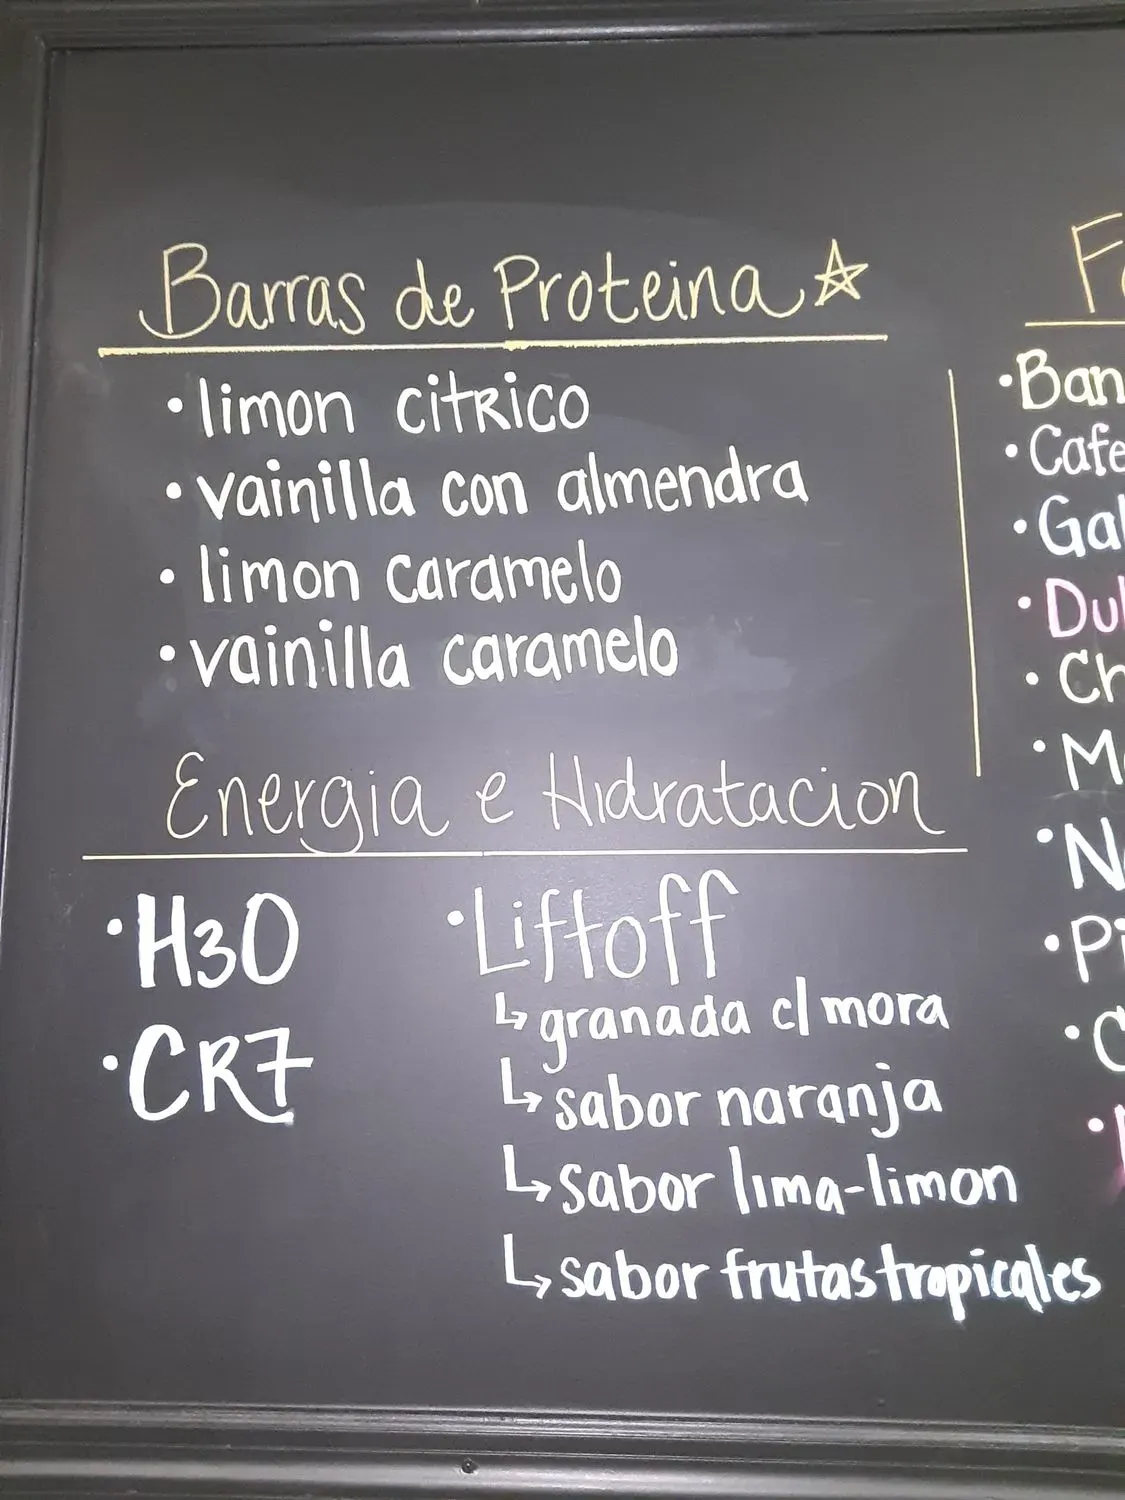 Barras de Proteina
• limon citrico
• vainilla con almendra
• limon caramelo
• vainilla caramelo
Energia e Hidratacion
• H3O
• CR7
• Liftoff
↳ granada c/ mora
↳ sabor naranja
↳ sabor lima-limon
↳ sabor frutas tropicales
• Ban
• Cafe
• Gal
• Dul
• Ch